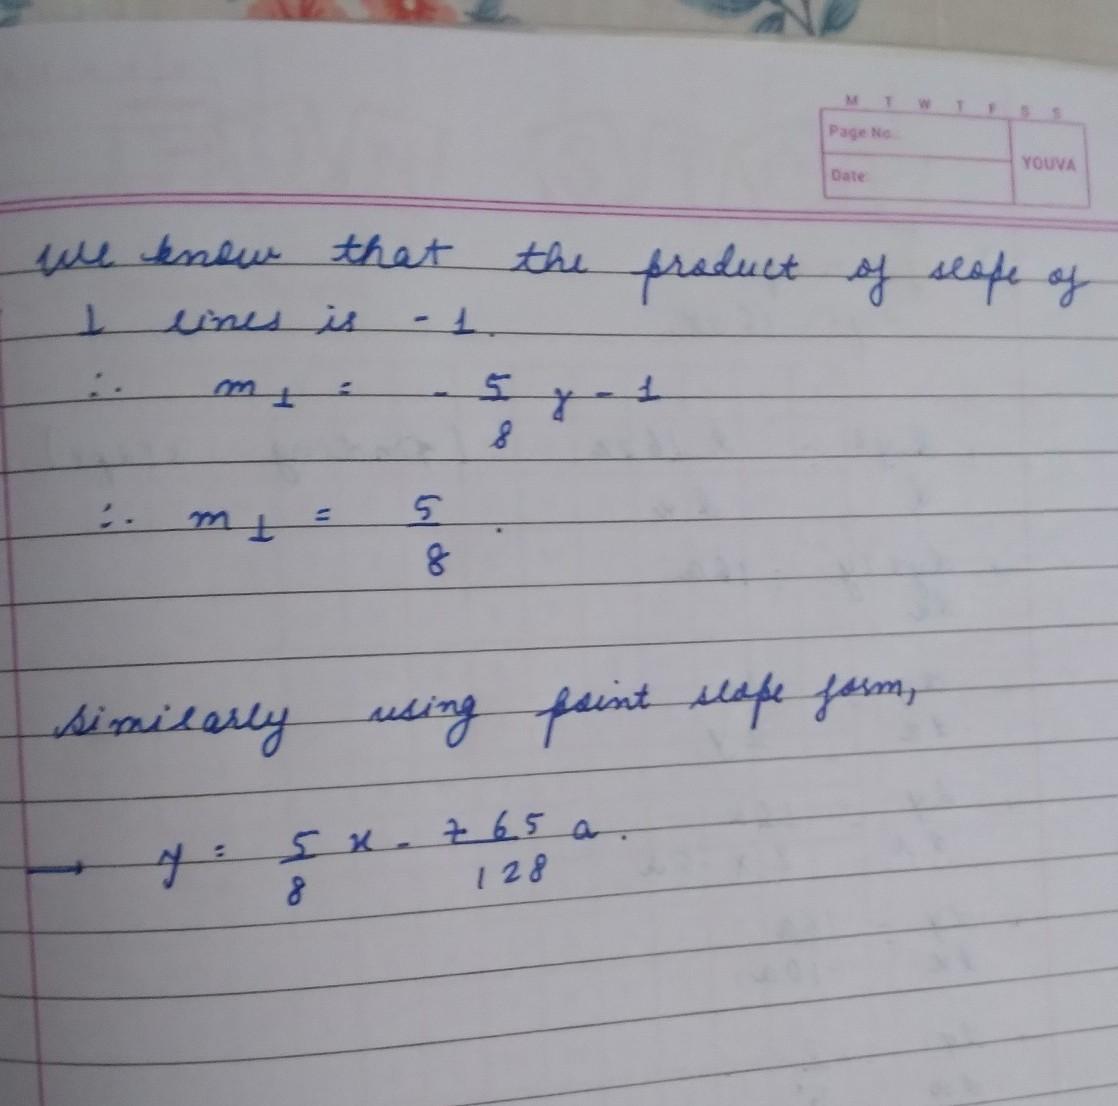 M T W T F S S
Page No.:
YOUVA
Date:
We know that the product of slope of
⊥ lines is -1.
∴ m⊥ = - 5/8 y - 1
∴ m⊥ = 5/8 .
Similarly using point slope form,
→ y = 5/8 x - 765/128 a.